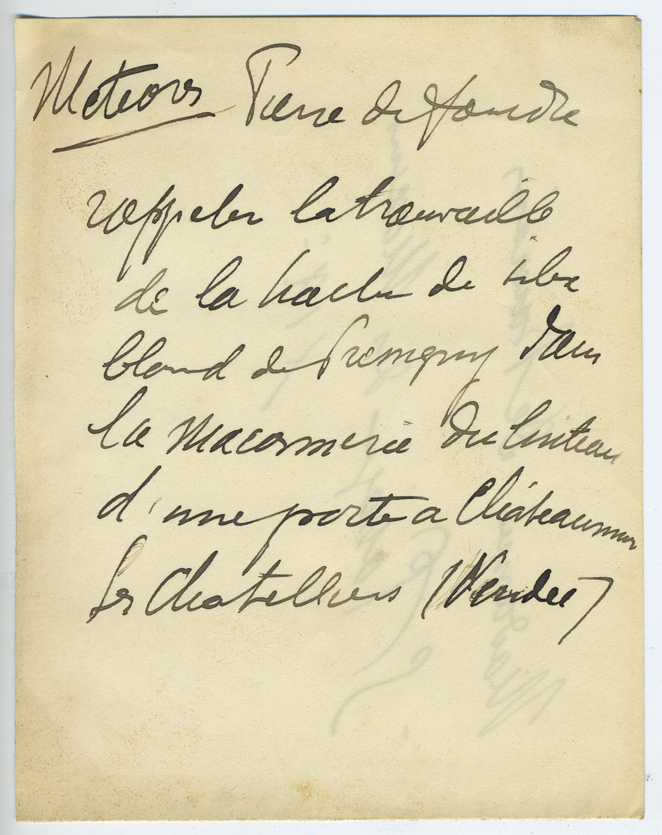 Meteores Pierre de foudre
rappeler la trouvaille
de la hache de silex
blond de Pressigny dans
la maconnerie du linteau
d'une porte a Châteaumur
Les Chatelliers (Vendée)